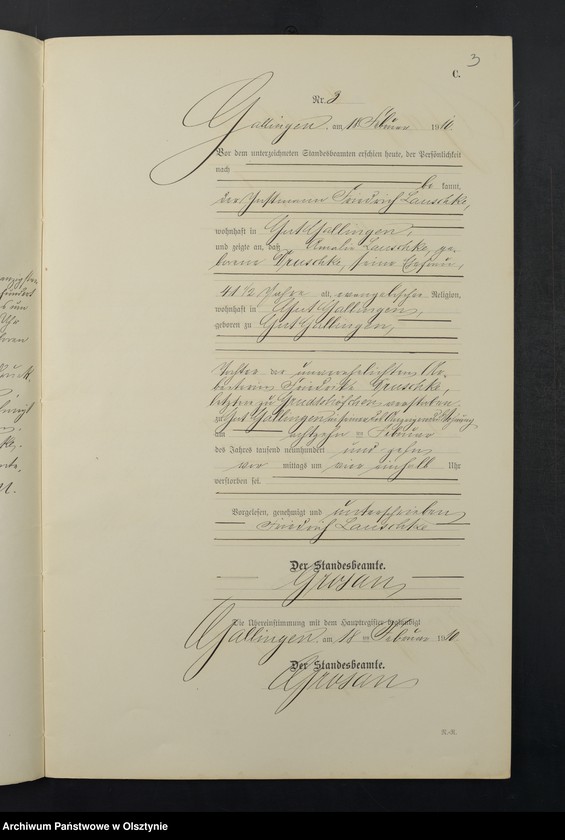 3
C.
Nr. 3
Gallingen, am 18 Februar 1910
Vor dem unterzeichneten Standesbeamten erschien heute, der Persönlichkeit
nach
be kannt,
der Instmann Friedrich Lauschke,
wohnhaft in Gut Gallingen,
und zeigte an, daß Amalie Lauschke, ge-
borene Gruschke, seine Ehefrau,
41 1/2 Jahre alt, evangelischer Religion,
wohnhaft in Gut Gallingen,
geboren zu Gut Gallingen,
Tochter der unverehelichten Ar-
beiterin Friederike Gruschke,
letztere zu verstorben
zu Gut Gallingen in seiner des Anzeigenden Wohnung
am achtzehn ten Februar
des Jahres tausend neunhundert und zehn
vor mittags um vier einhalb Uhr
verstorben sei.
Vorgelesen, genehmigt und unterschrieben
Friedrich Lauschke
Der Standesbeamte.
Grosan
Die Übereinstimmung mit dem Hauptregister beglaubigt
Gallingen, am 18 ten Februar 1910
Der Standesbeamte.
Grosan
Archiwum Państwowe w Olsztynie